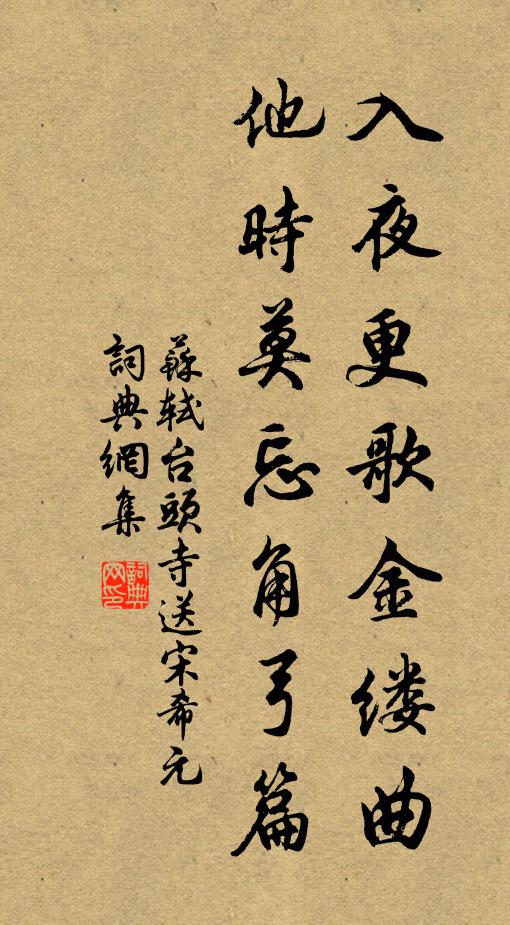 入夜更歌金缕曲
他時莫忘角弓篇
蘇軾台頭寺送宋希元
詞典網集
詞典網印